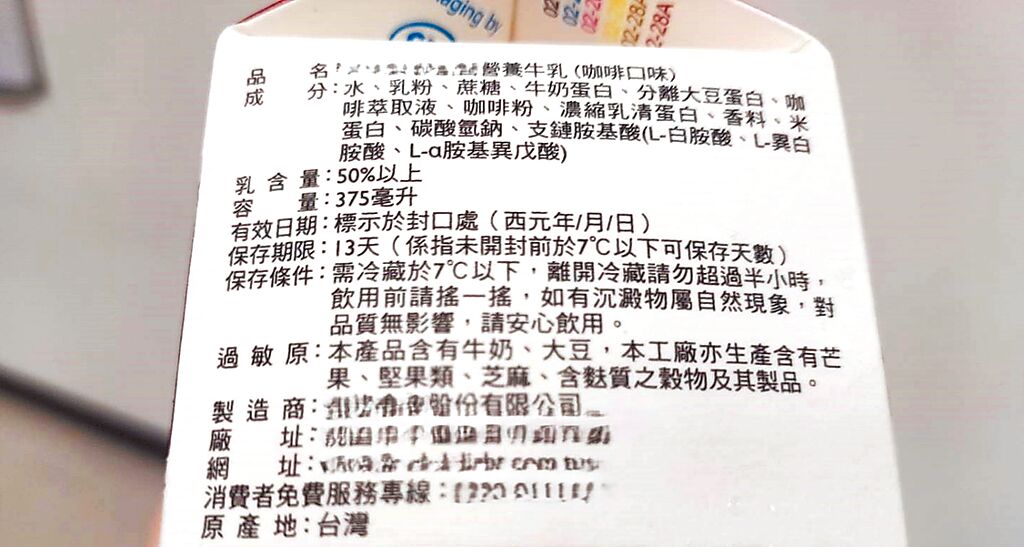 aging by
02-28A
02-28A
品名：營養牛乳（咖啡口味）
成分：水、乳粉、蔗糖、牛奶蛋白、分離大豆蛋白、咖
啡萃取液、咖啡粉、濃縮乳清蛋白、香料、米
蛋白、碳酸氫鈉、支鏈胺基酸(L-白胺酸、L-異白
胺酸、L-α胺基異戊酸)
乳含量：50%以上
容量：375毫升
有效日期：標示於封口處（西元年/月/日）
保存期限：13天（係指未開封前於7℃以下可保存天數）
保存條件：需冷藏於7℃以下，離開冷藏請勿超過半小時，
飲用前請搖一搖，如有沉澱物屬自然現象，對
品質無影響，請安心飲用。
過敏原：本產品含有牛奶、大豆，本工廠亦生產含有芒
果、堅果類、芝麻、含麩質之穀物及其製品。
製造商：股份有限公司
廠址：
網址：
消費者免費服務專線：
原產地：台灣